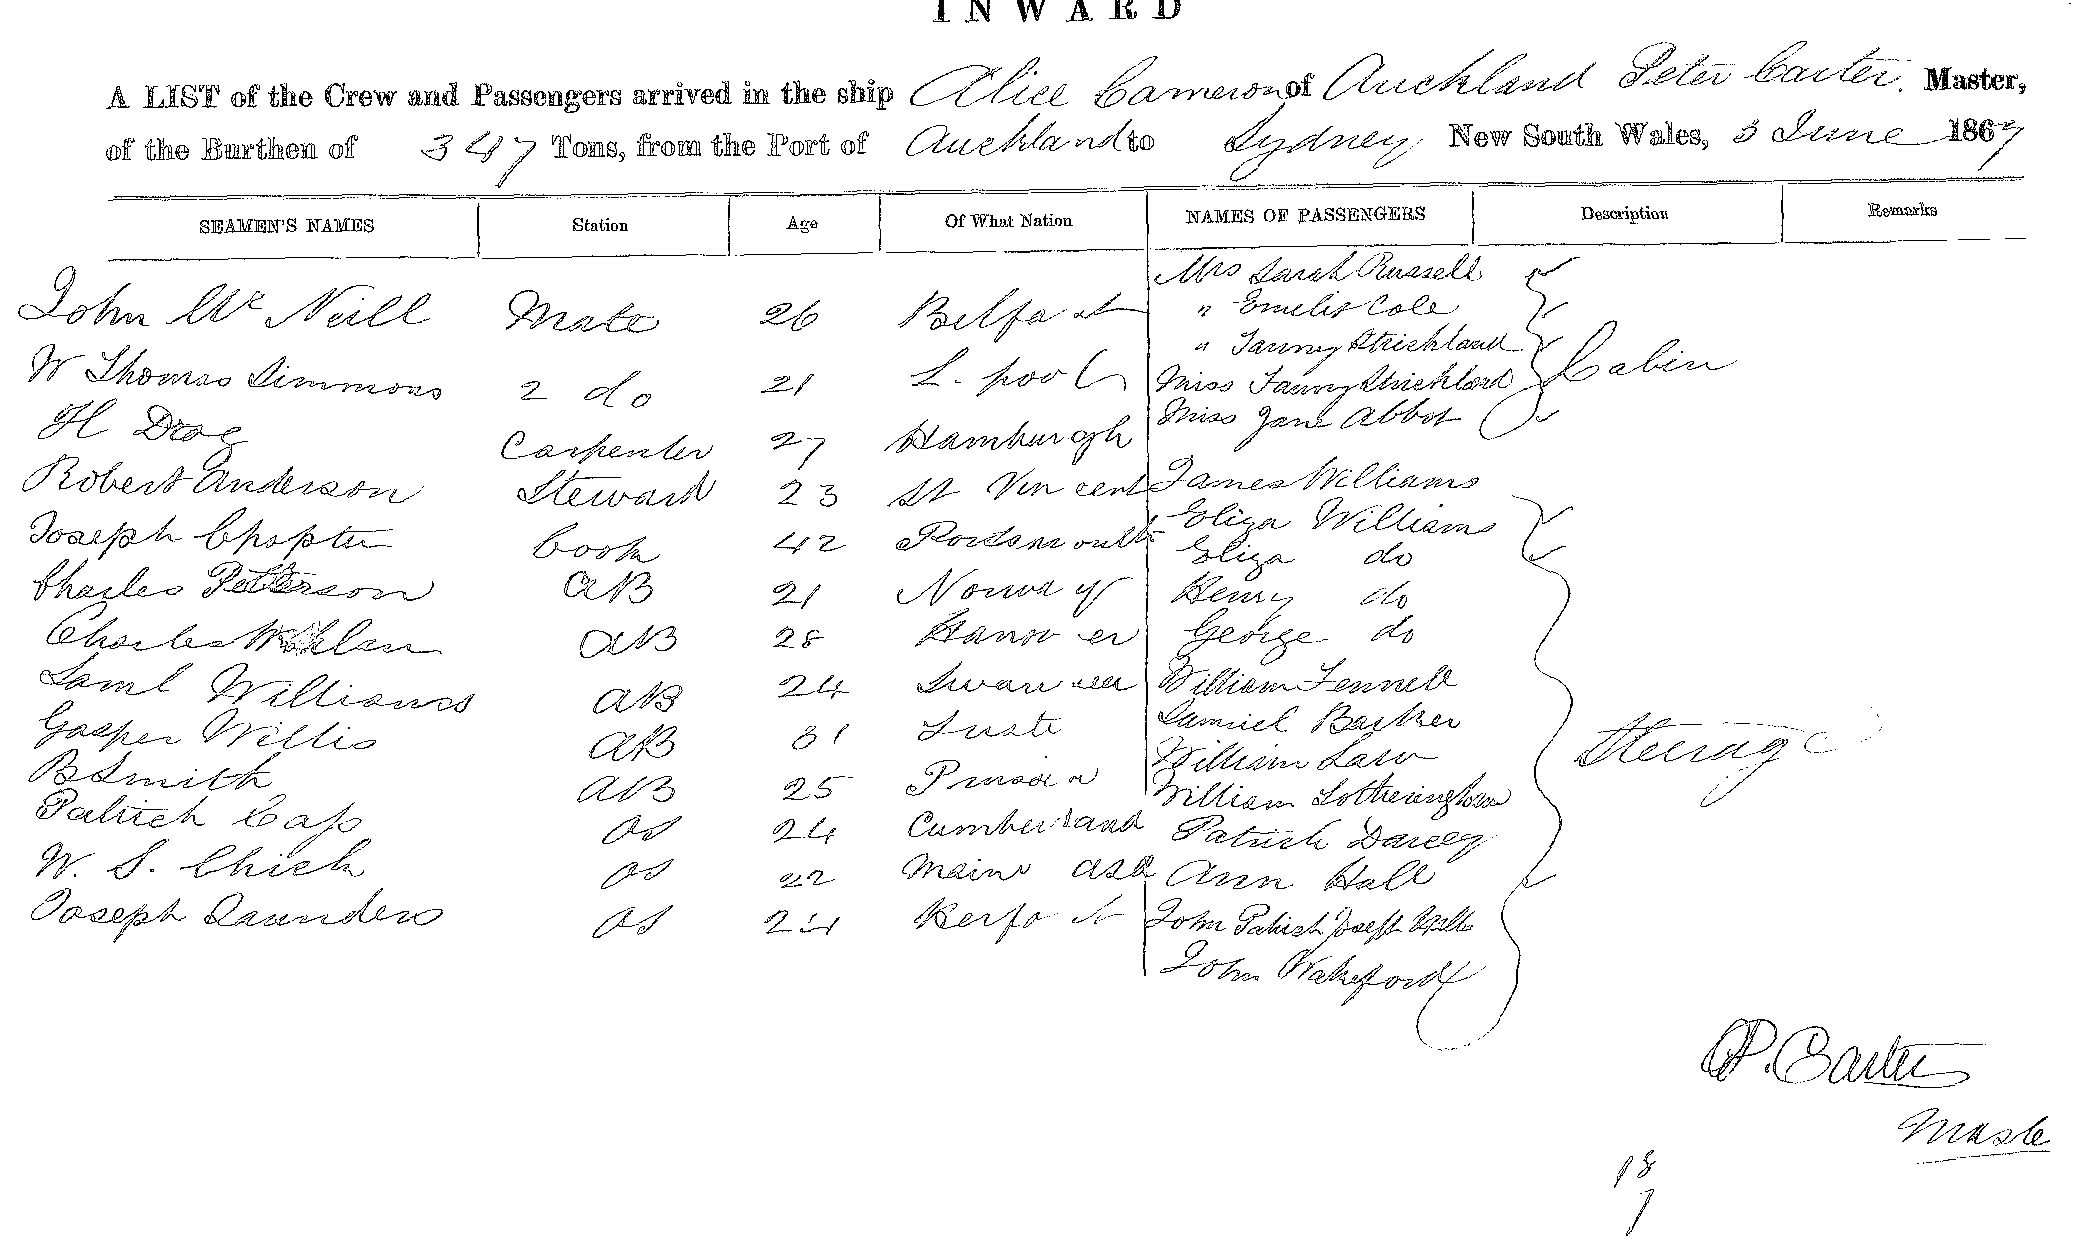 INWARD
A LIST of the Crew and Passengers arrived in the ship Alice Cameron of Auckland Peter Carter. Master,
of the Burthen of 347 Tons, from the Port of Auckland to Sydney New South Wales, 3 June 1867
SEAMEN'S NAMES Station Age Of What Nation NAMES OF PASSENGERS Description Remarks
John Mc Neill Mate 26 Belfast Mrs Sarah Russell
" Cole
W Thomas Simmons 2 do 21 L. pool " Fanny Strickland Cabin
Miss Fanny Strickland
H Carpenter 27 Hamburgh Miss Jane Abbot
Robert Anderson Steward 23 St Vincent James Williams
Eliza Williams
Joseph Cook 42 Portsmouth Eliza do
Charles Petterson AB 21 Norway Henry do
Charles AB 28 Hanover George do
Saml Williams AB 24 Swansea William Fennell
Gasper Willis AB 31 Samuel Barker
William Law Steerage
B Smith AB 25 Prussia William Lotherington
Patrick OS 24 Cumberland Patrick Darcey
W. S. Chick OS 22 Ann Hall
Joseph Saunders OS 24 John Patrick Joseph
John Wakeford
P. Carter
Master
18
7